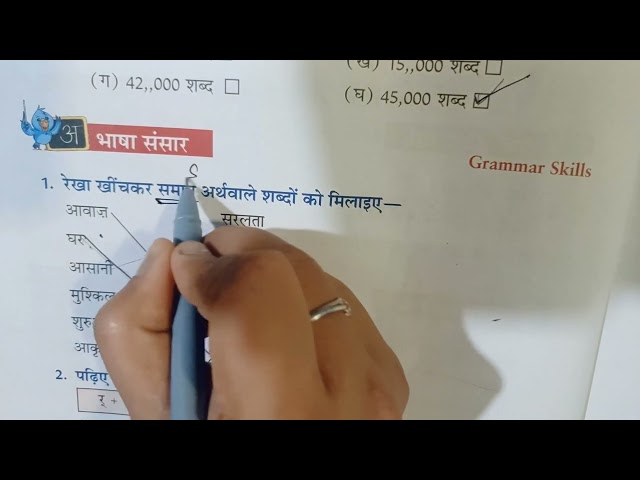 (ख) 15,,000 शब्द
(ग) 42,,000 शब्द
(घ) 45,000 शब्द
अ
भाषा संसार
Grammar Skills
1. रेखा खींचकर समान अर्थवाले शब्दों को मिलाइए—
आवाज़
सरलता
घर
आसानी
मुश्किल
2. पढ़िए
र् +